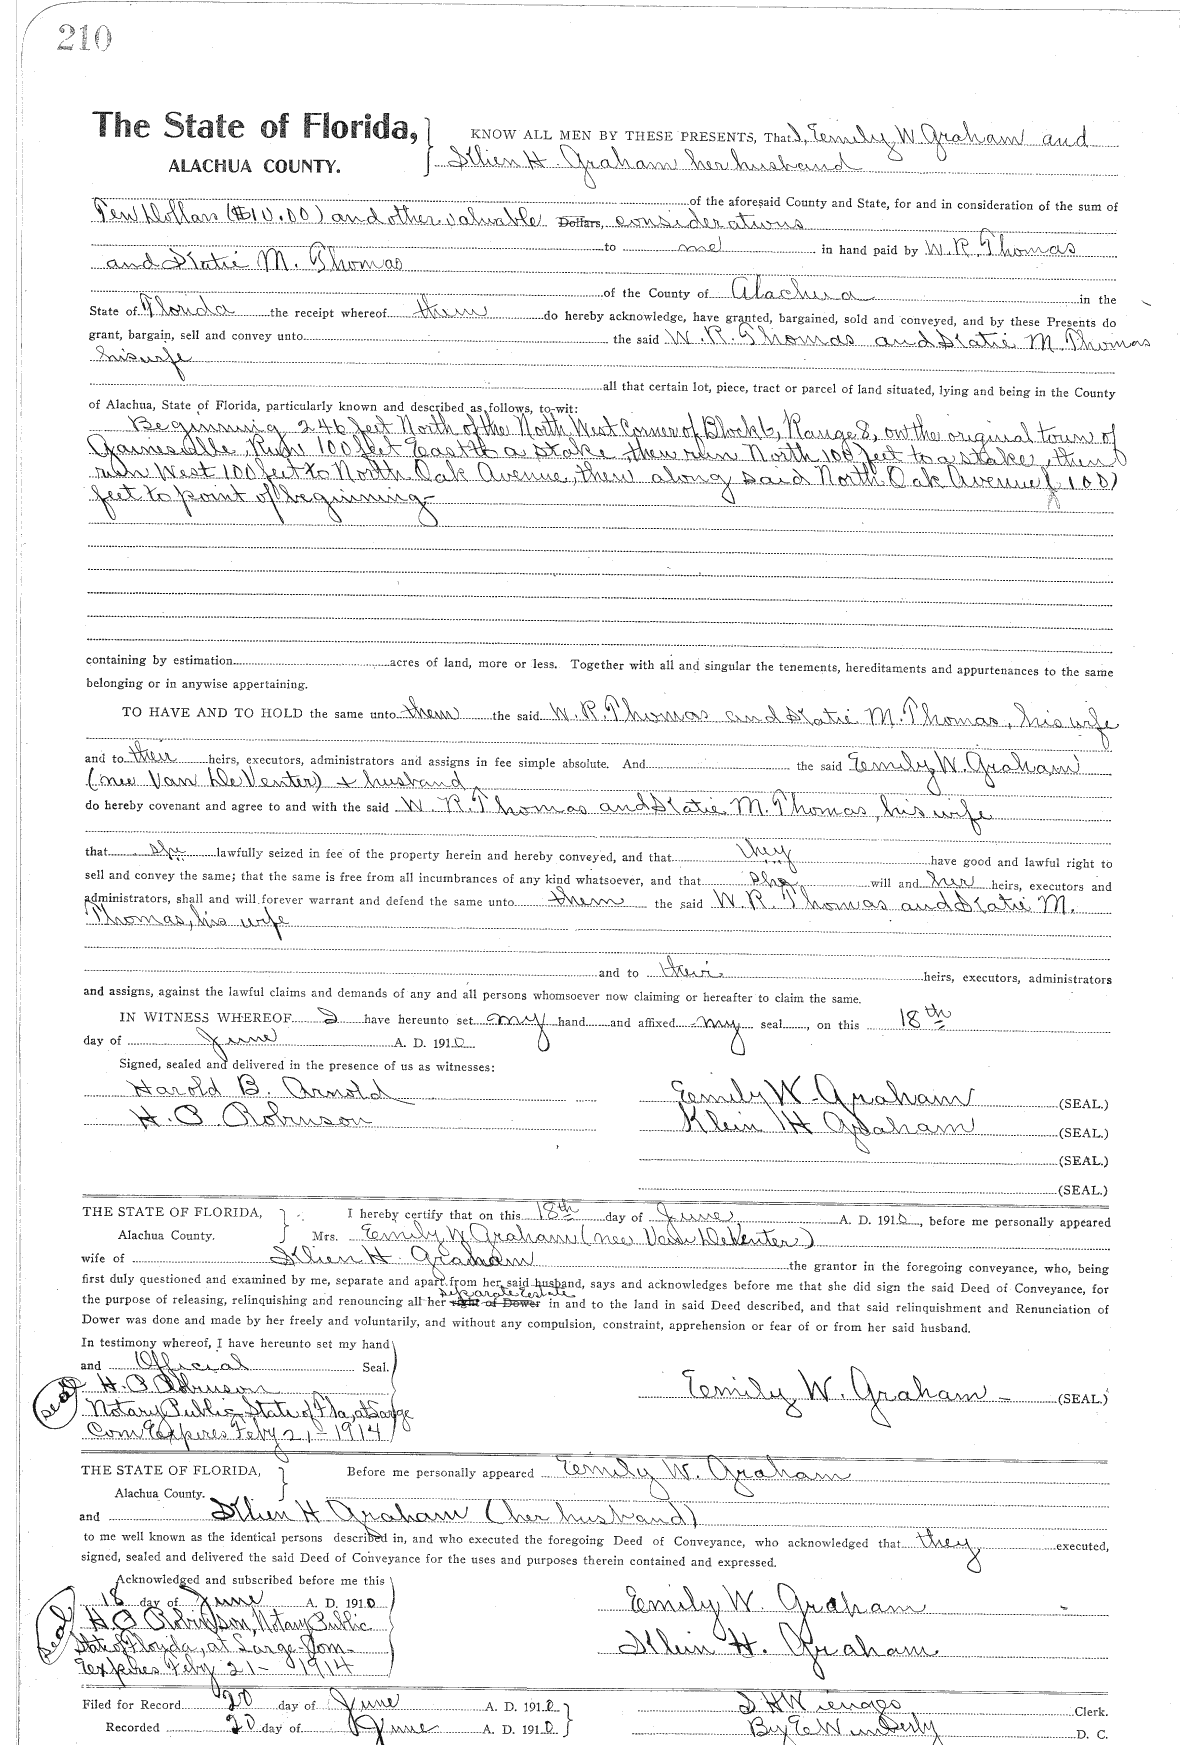 210
The State of Florida,
ALACHUA COUNTY.
KNOW ALL MEN BY THESE PRESENTS, That I, Emily W. Graham and
Klien H. Graham her husband
of the aforesaid County and State, for and in consideration of the sum of
Ten Dollars ($10.00) and other valuable Dollars, considerations
to me in hand paid by W. R. Thomas
and Katie M. Thomas
of the County of Alachua in the
State of Florida the receipt whereof them do hereby acknowledge, have granted, bargained, sold and conveyed, and by these Presents do
grant, bargain, sell and convey unto the said W. R. Thomas and Katie M. Thomas
his wife
all that certain lot, piece, tract or parcel of land situated, lying and being in the County
of Alachua, State of Florida, particularly known and described as follows, to-wit:
Beginning 246 feet North of the North West Corner of Block 6, Range 8, on the original town of
Gainesville, Run 100 feet East to a stake then run North 100 feet to a stake, then
run West 100 feet to North Oak Avenue, then along said North Oak Avenue (100)
feet to point of beginning-
containing by estimation acres of land, more or less. Together with all and singular the tenements, hereditaments and appurtenances to the same
belonging or in anywise appertaining.
TO HAVE AND TO HOLD the same unto them the said W. R. Thomas and Katie M. Thomas, his wife
and to their heirs, executors, administrators and assigns in fee simple absolute. And the said Emily W. Graham
(nee Van DeVenter) + husband
do hereby covenant and agree to and with the said W. R. Thomas and Katie M. Thomas, his wife
that she lawfully seized in fee of the property herein and hereby conveyed, and that they have good and lawful right to
sell and convey the same; that the same is free from all incumbrances of any kind whatsoever, and that she will and her heirs, executors and
administrators, shall and will forever warrant and defend the same unto them the said W. R. Thomas and Katie M.
Thomas, his wife
and to their heirs, executors, administrators
and assigns, against the lawful claims and demands of any and all persons whomsoever now claiming or hereafter to claim the same.
IN WITNESS WHEREOF I have hereunto set my hand and affixed my seal, on this 18th
day of June A. D. 1910
Signed, sealed and delivered in the presence of us as witnesses:
Harold B. Arnold Emily W. Graham (SEAL.)
H. O Robinson Klein H Graham (SEAL.)
(SEAL.)
(SEAL.)
THE STATE OF FLORIDA, I hereby certify that on this 18th day of June A. D. 1910, before me personally appeared
Alachua County. Mrs. Emily W Graham (nee Van DeVenter)
wife of Klien H. Graham the grantor in the foregoing conveyance, who, being
first duly questioned and examined by me, separate and apart from her said husband, says and acknowledges before me that she did sign the said Deed of Conveyance, for
separate estate
the purpose of releasing, relinquishing and renouncing all her right of Dower in and to the land in said Deed described, and that said relinquishment and Renunciation of
Dower was done and made by her freely and voluntarily, and without any compulsion, constraint, apprehension or fear of or from her said husband.
In testimony whereof, I have hereunto set my hand
and Official Seal.
seal H. O Robinson Emily W. Graham - (SEAL.)
Notary Public State of Fla, at Large
Com Expires Feby 21 - 1914
THE STATE OF FLORIDA, Before me personally appeared Emily W. Graham
Alachua County.
and Klien H Graham (her husband)
to me well known as the identical persons described in, and who executed the foregoing Deed of Conveyance, who acknowledged that they executed,
signed, sealed and delivered the said Deed of Conveyance for the uses and purposes therein contained and expressed.
Acknowledged and subscribed before me this
18 day of June A. D. 1910 Emily W. Graham
seal H. O Robinson, Notary Public
State of Florida, at Large Com- Klein H. Graham
Expires Feby 21 - 1914
Filed for Record 20 day of June A. D. 1910 S H Wienges Clerk.
Recorded 20 day of June A. D. 1910 By E Wimberly D. C.